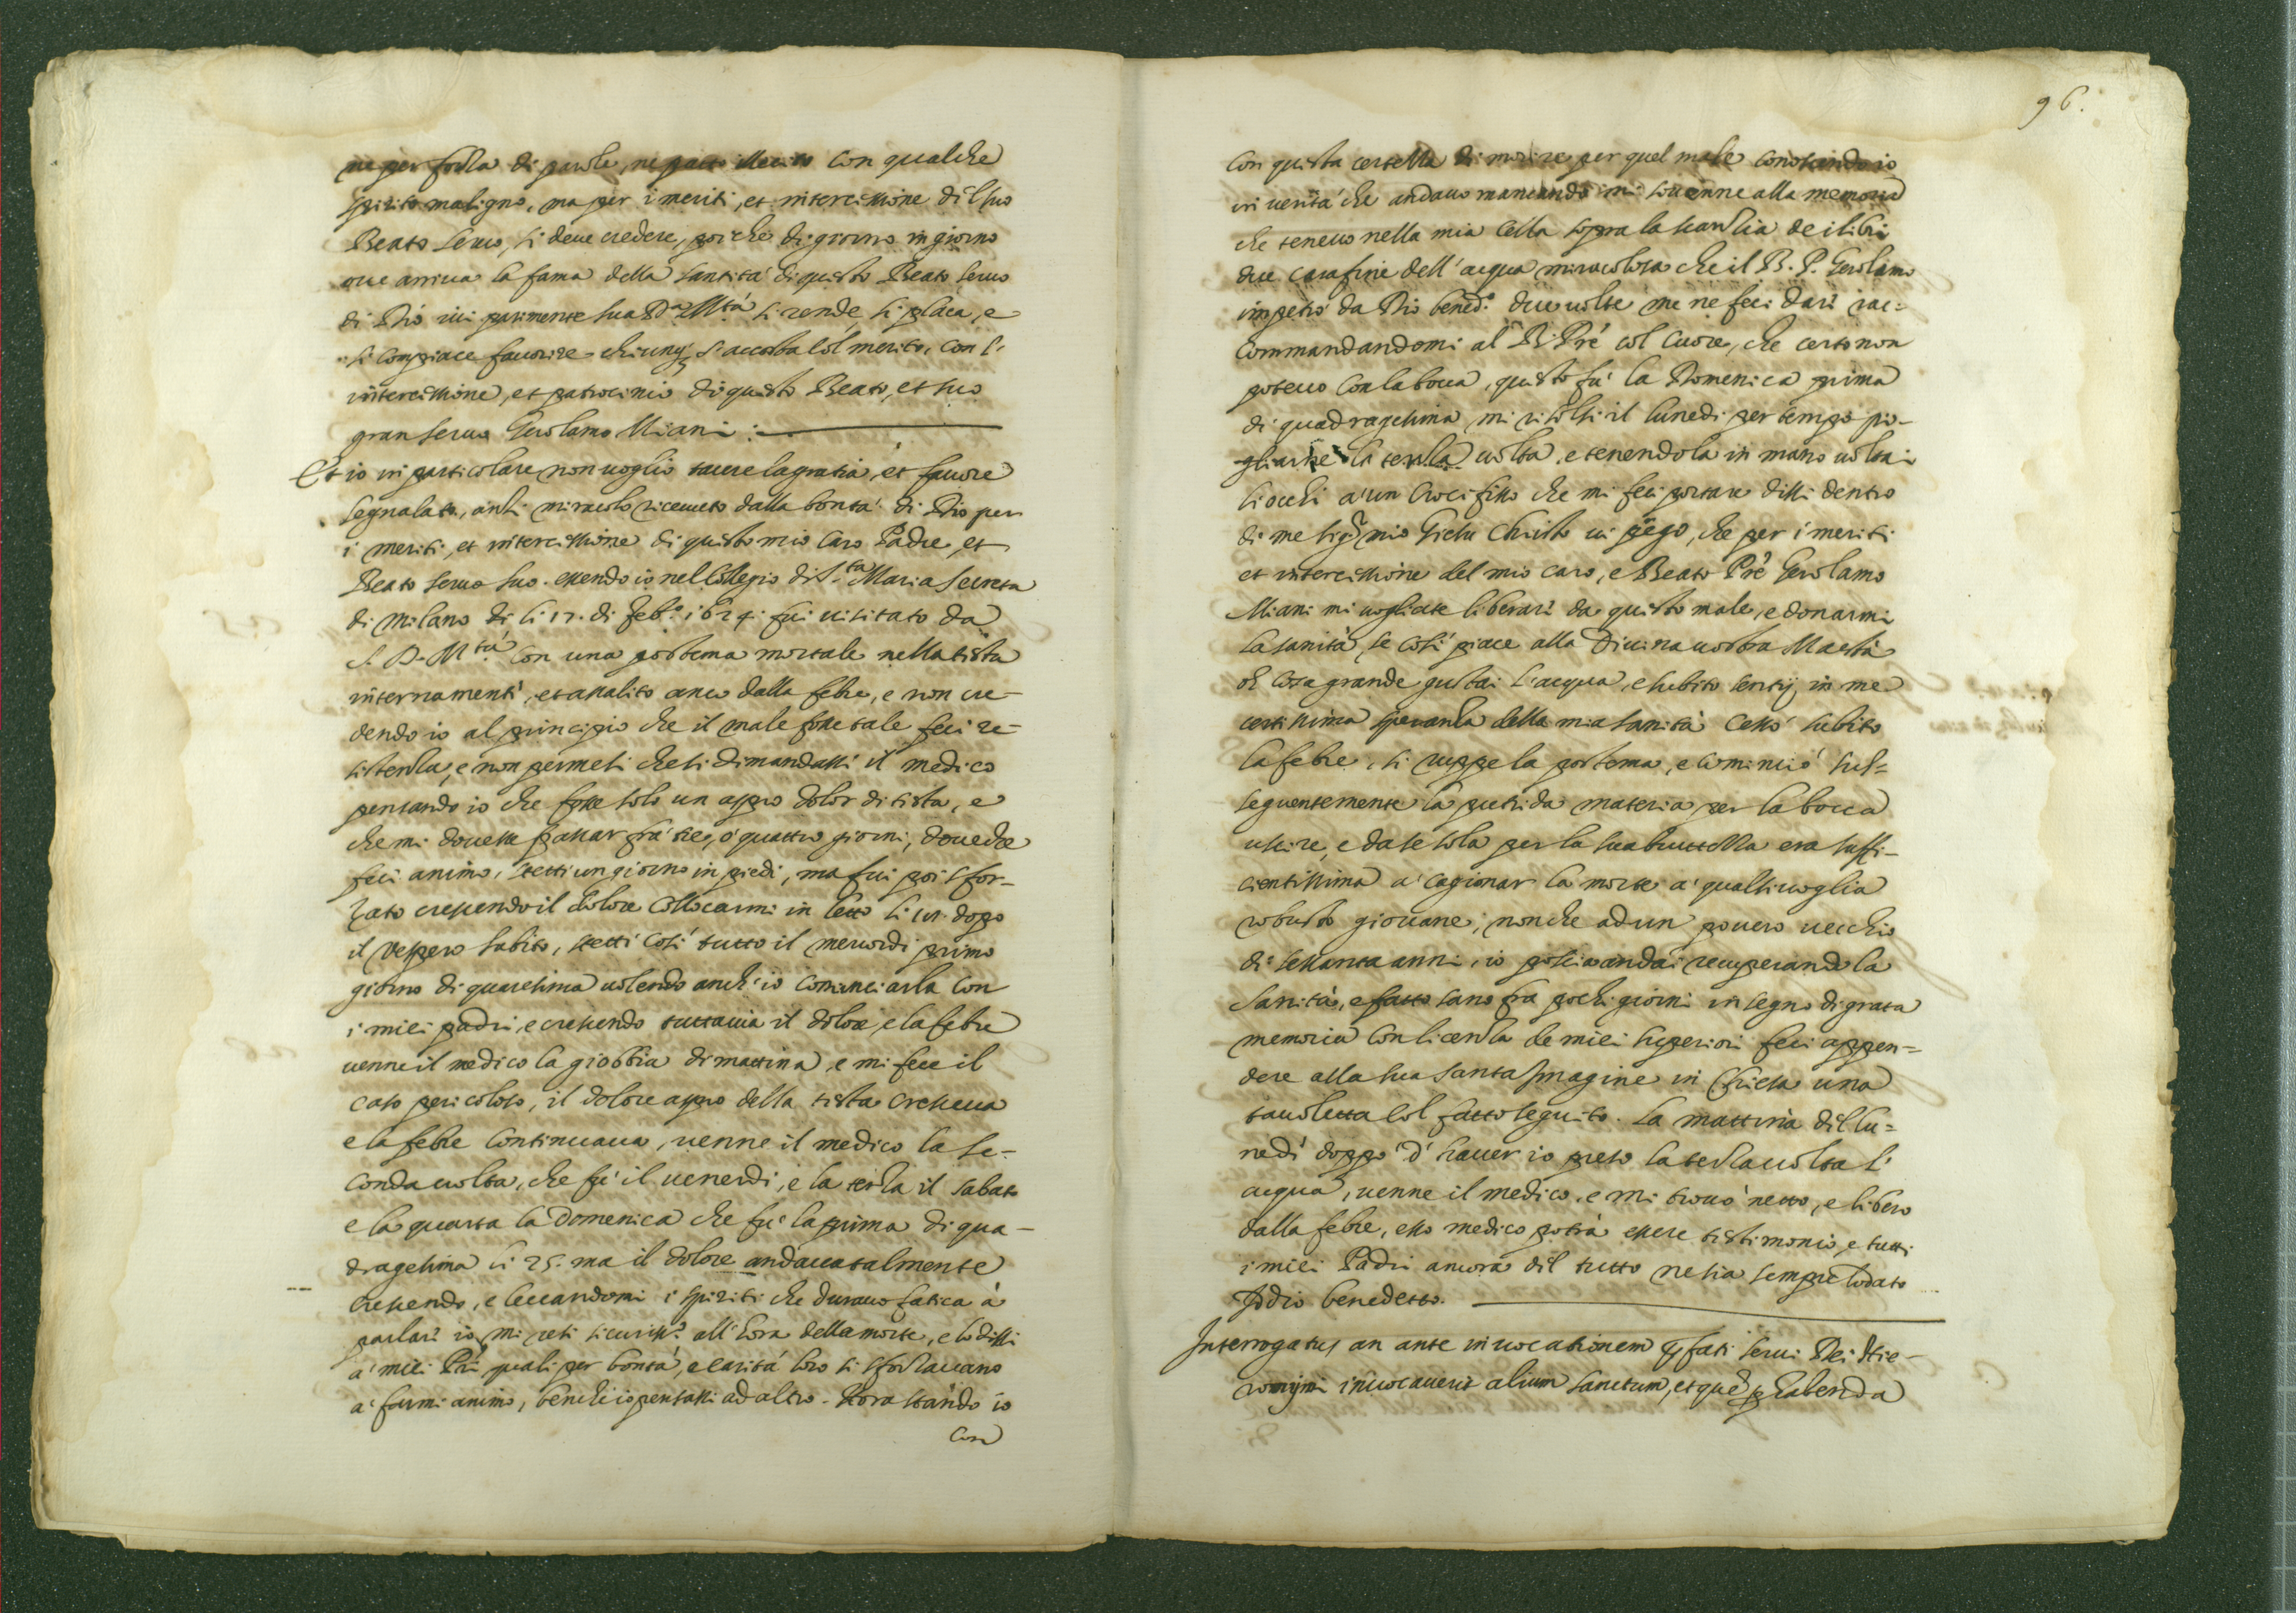 ne per forza di parole, ne patto illecito con qualche
spirito maligno, ma per i meriti, et intercessione dil suo
Beato seruo, si deue credere, poi che di giorno in giorno
oue arriua la fama della santità di questo Beato seruo
di Dio iui parimente sua D.a M.tà si rende, si placa, e
si compiace fauorire chiunq; s'accosta col merito, con l'
intercessione, et patrocinio di questo Beato, et suo
gran seruo Gerolamo Miani:
Et io in particolare non uoglio tacere la gratia, et fauore
segnalato, anzi miracolo riceuuto dalla bontà di Dio per
i meriti, et intercessione di questo mio caro Padre, et
Beato seruo suo. essendo io nel Collegio di S.ta Maria Secreta
di Milano di li 17. di Feb.o 1624. fui uisitato da
S. D. M.tà con una postema mortale nella testa
internamente, et assalito anco dalla febre, e non cre-
dendo io al principio che il male fosse tale feci re-
sistenza, e non permesi che si dimandassi il medico
pensando io che fosse solo un aspro dolor di testa, e
che mi douesse passar frà tre, ò quattro giorni, doue che
feci animo, stetti un giorno in piedi, ma fui poi sfor-
zato crescendo il dolore collocarmi in letto li dopo
il Vespero subito, stetti così tutto il mercordi primo
giorno di quaresima uolendo anch'io cominciarla con
i miei padri, e crescendo tuttauia il dolore, e la febre
uenne il medico la giobbia di mattina, e mi fece il
caso pericoloso, il dolore aspro della testa cresceua
e la febre continuaua, uenne il medico la se-
conda uolta, che fù il uenerdi, e la terza il sabato
e la quarta la Domenica che fù la prima di qua-
dragesima li 25. ma il dolore andaua talmente
crescendo, e leuandomi i spiriti che durauo fatica à
parlare io mi resi sicuriss.o all'hora della morte, e lo dissi
a' miei Prì quali per bontà, e carità loro si sforzauano
a' farmi animo, benche io pensassi ad altro. Hora stando io
con
96.
con questa certezza di morire per quel male conoscendo io
in uerità che andauo mancando mi souuenne alla memoria
che teneuo nella mia cella sopra la scanzia de i libri
due carafine dell'acqua miracolosa che il B. P. Gerolamo
impetrò da Dio bened.o due uolte me ne feci dare rac-
commandandomi al B. Prè col cuore, che certo non
poteuo con la bocca, questo fù la Domenica prima
di quadragesima, mi risolsi il lunedi per tempo pi-
gliarne la terza uolta, e tenendola in mano uoltai
li occhi a' un Crocifisso che mi feci portare dissi dentro
di me Sig.r mio Giesu Christo ui prego, che per i meriti
et intercessione del mio caro, e Beato Prè Gerolamo
Miani mi uogliate liberare da questo male, e donarmi
la sanità, se così piace alla Diuina uostra Maestà
oh cosa grande gustai l'acqua, e subito sentij in me
certissima speranza della mia sanità cessò subito
la febre, si ruppe la postema, e cominciò sus-
seguentemente la putrida materia per la bocca
uscire, e da se sola per la sua bruttezza era suffi-
cientissima a' cagionar la morte a' qualsiuoglia
robusto giouane, non che ad un pouero uecchio
di sessanta anni, io poscia andai recuperando la
sanità, e fatto sano fra pochi giorni in segno di grata
memoria con licenza de miei superiori feci appen-
dere alla sua santa Imagine in Chiesa una
tauoletta col fatto seguito. La mattina dil lu-
nedì doppò d'hauer io preso la terza uolta l'
acqua, uenne il medico, e mi trouò netto, e libero
dalla febre, esso medico potrà essere testimonio, e tutti
i miei Padri ancora dil tutto ne sia sempre lodato
Iddio benedetto.
Interrogatus an ante inuocationem pfati serui Dei Hie-
ronymi inuocauerit alium sanctum, et que p habenda